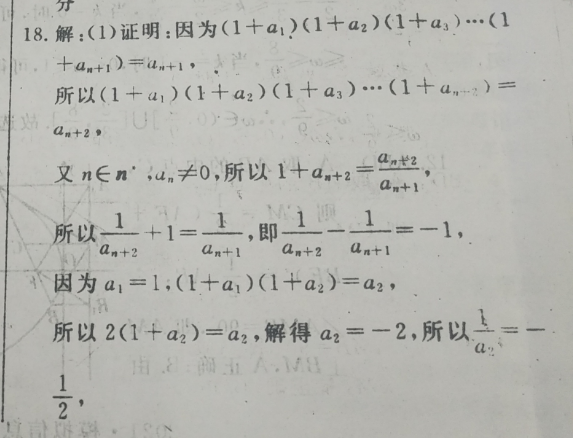 分
18. 解:(1)证明:因为(1+a₁)(1+a₂)(1+a₃)…(1
+aₙ₊₁)=aₙ₊₁,
所以(1+a₁)(1+a₂)(1+a₃)…(1+aₙ₊₂)=
aₙ₊₂。
又 n∈n*,aₙ≠0,所以 1+aₙ₊₂=aₙ₊₂/aₙ₊₁,
所以 1/aₙ₊₂+1=1/aₙ₊₁,即 1/aₙ₊₂-1/aₙ₊₁=-1,
因为 a₁=1,(1+a₁)(1+a₂)=a₂,
所以 2(1+a₂)=a₂,解得 a₂=-2,所以 1/a₂=-
1/2,